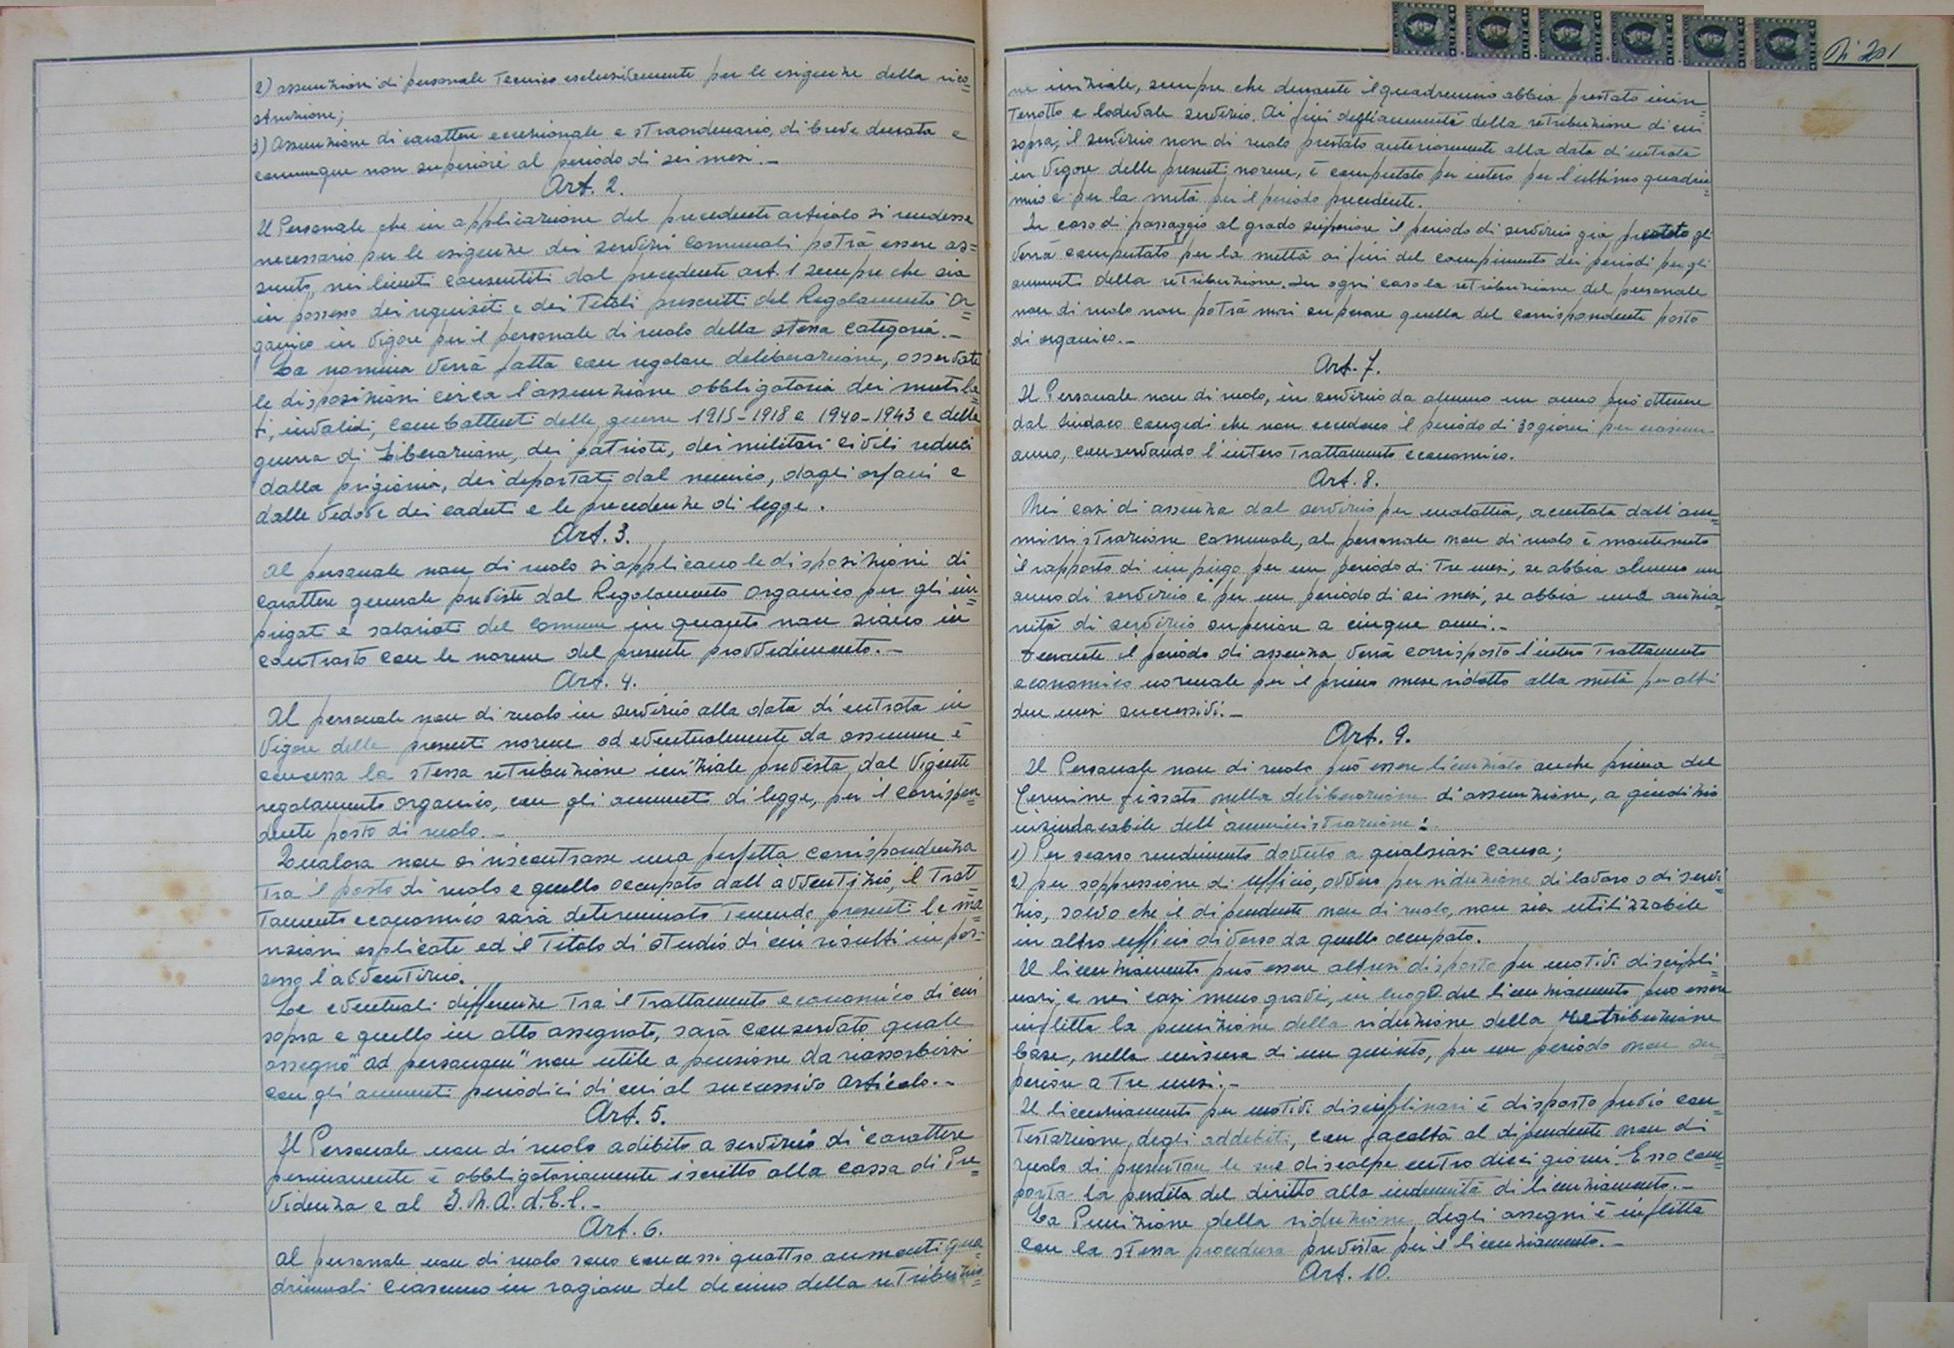 2) assunzioni di personale Tecnico esclusivamente per le esigenze della rico=
struzione;
3) Assunzione di carattere eccezionale e straordinario, di breve durata e
comunque non superiore al periodo di sei mesi.-
Art. 2.
Il Personale che in applicazione del precedente articolo si rendesse
necessario per le esigenze dei servizi comunali potrà essere as=
sunto, nei limiti consentiti dal precedente art. 1 sempre che sia
in possesso dei requisiti e dei Titoli prescritti del Regolamento Or=
ganico in vigore per il personale di ruolo della stessa categoria.-
La nomina verrà fatta con regolare deliberazione, osservate
le disposizioni circa l'assunzione obbligatoria dei mutila=
ti, invalidi, combattenti delle guerre 1915-1918 e 1940-1943 e della
guerra di Liberazione, dei patrioti, dei militari civili reduci
dalla prigionia, dei deportati dal nemico, dagli orfani e
dalle vedove dei caduti e le precedenze di legge.
Art. 3.
Al personale non di ruolo si applicano le disposizioni di
carattere generale previste dal Regolamento Organico per gli im=
piegati e salariati del Comune in quanto non siano in
contrasto con le norme del presente provvedimento.-
Art. 4.
Al personale non di ruolo in servizio alla data di entrata in
vigore delle presenti norme od eventualmente da assumere è
concessa la stessa retribuzione iniziale prevista dal vigente
regolamento organico, con gli aumenti di legge, per il corrispon=
dente posto di ruolo.-
Qualora non si riscontrasse una perfetta corrispondenza
tra il posto di ruolo e quello occupato dall'avventizio, il Trat=
tamento economico sarà determinato Tenendo presenti le ma=
nsioni esplicate ed il Titolo di studio di cui risulti in pos=
sesso l'avventizio.
Le eventuali differenze Tra il Trattamento economico di cui
sopra e quello in atto assegnato, sarà conservato quale
assegno "ad personam" non utile a pensione da riassorbirsi
con gli aumenti periodici di cui al successivo articolo.-
Art. 5.
Il Personale non di ruolo adibito a servizio di carattere
permanente è obbligatoriamente iscritto alla cassa di Pre=
videnza e al I.N.A.d.E.l.-
Art. 6.
Al personale non di ruolo sono concessi quattro aumenti qua=
driennali ciascuno in ragione del decimo della retribuzio=
Di 201
ne iniziale, sempre che durante il quadriennio abbia prestato inin=
Terrotto e lodevole servizio. Ai fini degli aumenti della retribuzione di cui
sopra, il servizio non di ruolo prestato anteriormente alla data di entrata
in vigore delle presenti norme, è computato per intero per l'ultimo quadrie=
nnio e per la metà per il periodo precedente.
In caso di passaggio al grado superiore il periodo di servizio già prestato gli
verrà computato per la metà ai fini del compimento dei periodi per gli
aumenti della retribuzione. In ogni caso la retribuzione del personale
non di ruolo non potrà mai superare quella del corrispondente posto
di organico.-
Art. 7.
Il Personale non di ruolo, in servizio da almeno un anno può ottenere
dal Sindaco congedi che non eccedano il periodo di 30 giorni per ciascun
anno, conservando l'intero Trattamento economico.
Art. 8.
Nei casi di assenza dal servizio per malattia, accertata dall'am=
ministrazione comunale, al personale non di ruolo è mantenuto
il rapporto di impiego per un periodo di Tre mesi, se abbia almeno un
anno di servizio e per un periodo di sei mesi, se abbia una anzia=
nità di servizio superiore a cinque anni.-
Durante il periodo di assenza verrà corrisposto l'intero Trattamento
economico normale per il primo mese ridotto alla metà per altri
due mesi successivi.-
Art. 9.
Il Personale non di ruolo può essere licenziato anche prima del
Termine fissato nella deliberazione di assunzione, a giudizio
insindacabile dell'amministrazione:
1) Per scarso rendimento dovuto a qualsiasi causa;
2) per soppressione di ufficio, ovvero per riduzione di lavoro o di servi=
zio, salvo che il dipendente non di ruolo, non sia utilizzabile
in altro ufficio diverso da quello occupato.
Il licenziamento può essere altresì disposto per motivi discipli=
nari, e nei casi meno gravi, in luogo del licenziamento può essere
inflitta la punizione della riduzione della Retribuzione
base, nella misura di un quinto, per un periodo non su=
periore a Tre mesi.-
Il licenziamento per motivi disciplinari è disposto previo con=
Testazione degli addebiti, con facoltà al dipendente non di
ruolo di presentare le sue discolpe entro dieci giorni. Esso com=
porta la perdita del diritto alla indennità di licenziamento.-
La Punizione della riduzione degli assegni è inflitta
con la stessa procedura prevista per il licenziamento.-
Art. 10.